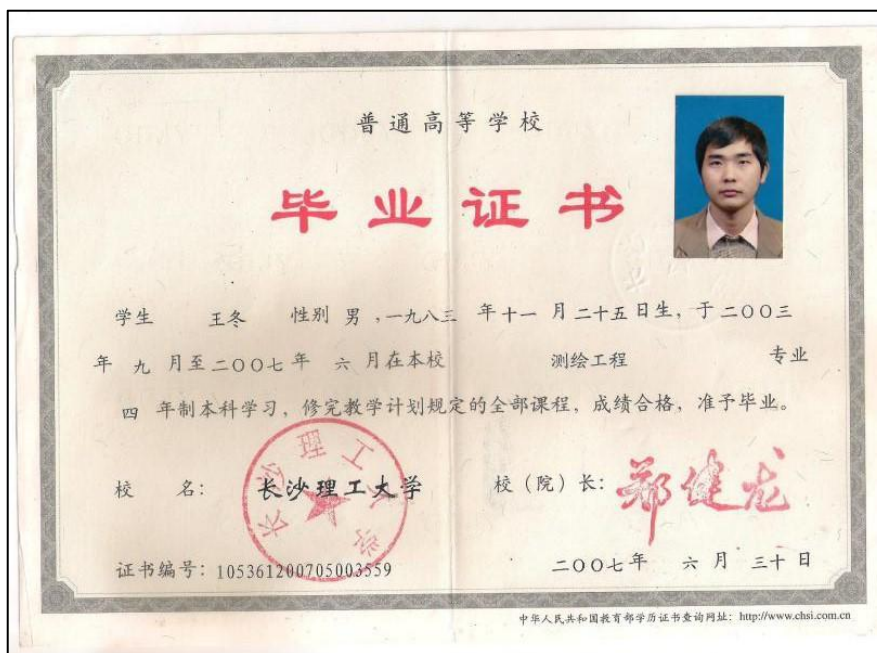 普通高等学校
毕业证书
学生 王冬 性别 男 ,一九八三 年十一 月二十五日生，于二〇〇三
年 九 月至二〇〇七年 六 月在本校 测绘工程 专业
四 年制本科学习，修完教学计划规定的全部课程，成绩合格，准予毕业。
校 名： 长沙理工大学 校（院）长： 郑健龙
长沙理工大学
证书编号：105361200705003559 二〇〇七年 六 月 三十 日
中华人民共和国教育部学历证书查询网址：http://www.chsi.com.cn